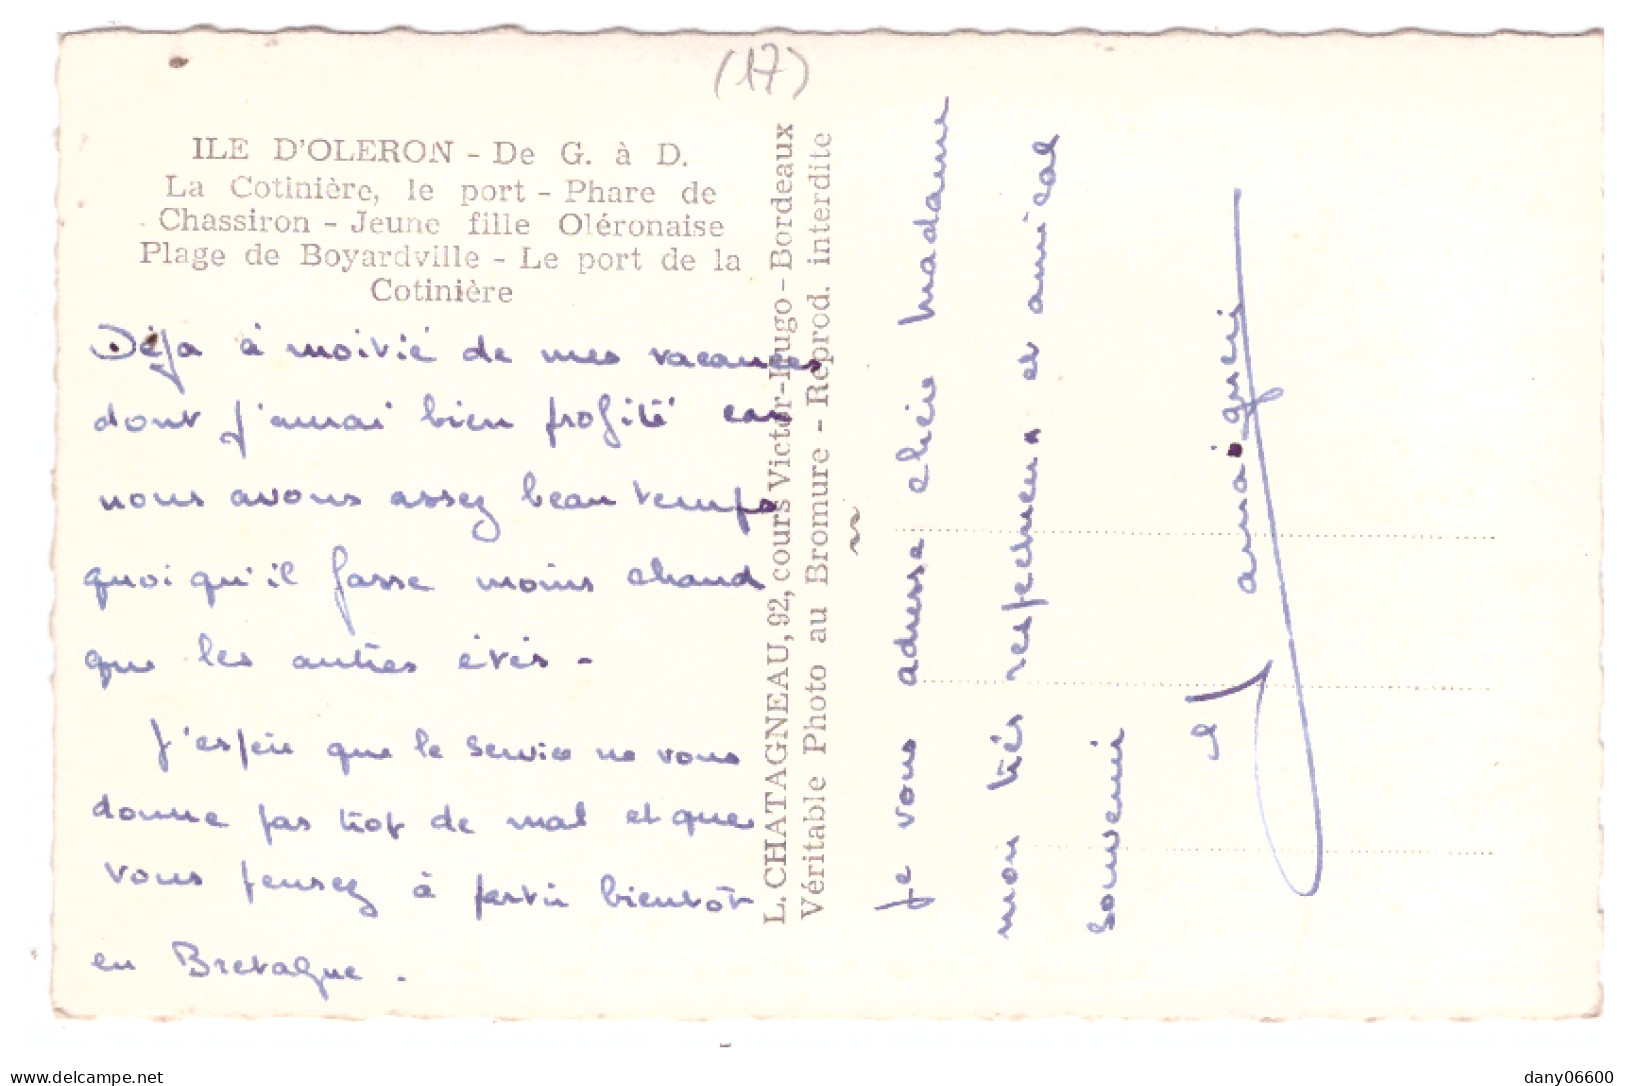 (17)
ILE D'OLERON - De G. à D.
La Cotinière, le port - Phare de
Chassiron - Jeune fille Oléronaise
Plage de Boyardville - Le port de la
Cotinière
Déja à moitié de mes vacances
dont j'aurai bien profité car
nous avons assez beau temps
quoi qu'il fasse moins chaud
que les autres étés -
J'espère que le service ne vous
donne pas trop de mal et que
vous pensez à partir bientôt
en Bretagne.
L. CHATAGNEAU, 92, cours Victor-Hugo - Bordeaux
Véritable Photo au Bromure - Reprod. interdite
Je vous adresse chère Madame
mon très respectueux et amical
souvenir
www.delcampe.net
dany06600